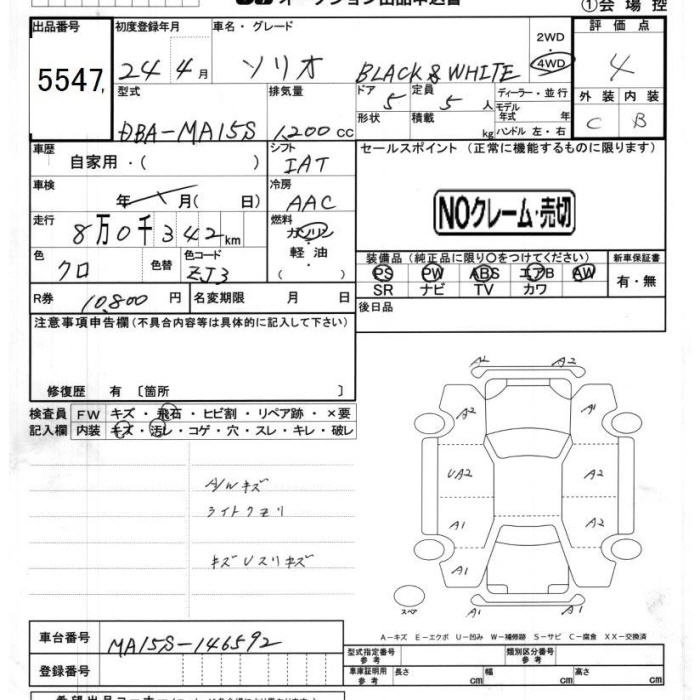 オークション出品申込書
①会場控
出品番号 初度登録年月 車名・グレード 2WD ・ 4WD 評価点
5547 24年4月 ソリオ BLACK & WHITE 4
型式 排気量 ドア 定員 ディーラー・並行 外装 内装
DBA-MA15S 1,200cc 5 5人 モデル年式 年 C B
形状 積載 kg ハンドル 左・右
車歴 シフト セールスポイント (正常に機能するものに限ります)
自家用・( ) IAT
車検 冷房
年 月( 日) AAC NOクレーム・売切
走行 燃料
8万0千342km ガソリン
軽油
( )
色 色替 色コード 装備品 (純正品に限り○をつけてください) 新車保証書
クロ ZJ3 PS PW ABS エアB AW 有・無
SR ナビ TV カワ
R券 10,800円 名変期限 月 日 後日品
注意事項申告欄(不具合内容等は具体的に記入して下さい)
修復歴 有 〔箇所 〕
検査員 FW キズ・飛石・ヒビ割・リペア跡・×要
記入欄 内装 キズ・汚レ・コゲ・穴・スレ・キレ・破レ
A2 A2
A2 A1
UA2 A2
A1 A2
A1
A1 A1
スペア
A/Wキズ
ライトクモリ
キズUスリキズ
A-キズ E-エクボ U-凹み W-補修跡 S-サビ C-腐食 XX-交換済
車台番号 MA15S-146592
型式指定番号 参考 類別区分番号 参考
登録番号 車庫証明用 参考 長さ cm 幅 cm 高さ cm
希望出品コーナー